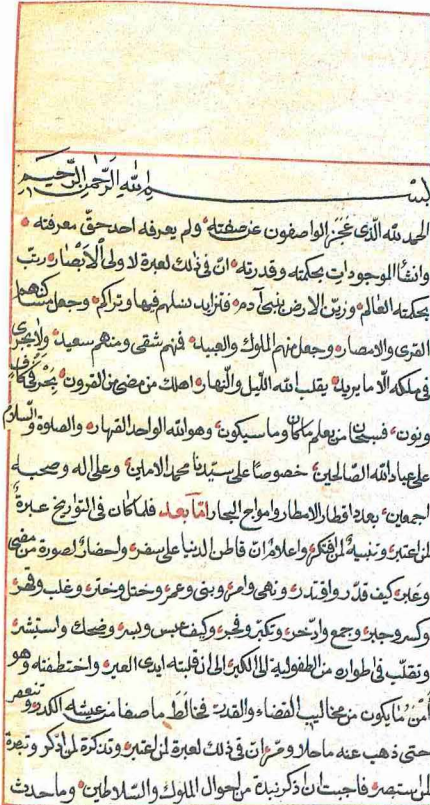 بسم الله الرحمن الرحيم
الحمد لله الذى عجز الواصفون عن صفته ولم يعرفه احد حق معرفته
وانشأ الموجودات بحكمته وقدرته ان فى ذلك لعبرة لاولى الابصار رتب
بحكمته العالم وزين الارض ببنى آدم فتزايد نسلهم فيها وتراكم وجعل مسكنهم
القرى والامصار وجعل منهم الملوك والعبيد فمنهم شقى ومنهم سعيد ولا يجرى
فى ملكه الا ما يريد يقلب الله الليل والنهار اهلك من مضى من القرون بحرفى كاف
ونون فسبحان من يعلم ما كان وما سيكون وهو الله الواحد القهار والصلوة والسلام
على عباد الله الصالحين خصوصا على سيدنا محمد الامين وعلى اله وصحبه
اجمعين بعدد اقطار الامطار وامواج البحار اما بعد فلما كان فى التواريخ عبرة
لمن اعتبر وتنبيه لمن افتكر واعلام ان قاطن الدنيا على سفر واحضار لصورة من مضى
وغبر كيف قدر واقتدر ونهى وامر وبنى وعمر وختل وختر وغلب وقهر
وكسر وجبر وجمع وادخر وتكبر وفجر وكيف عبس وبسر وضحك واستبشر
وتقلب فى اطواره من الطفولية الى الكبر الى ان قلبته ايدى العبر واختطفته وهو
آمن ما يكون من مخاليب القضاء والقدر فخالط ما صفا من عيشه الكدر وتنغص
حتى ذهب عنه ما حلا ومر ان فى ذلك لعبرة لمن اعتبر وتذكرة لمن اذكر وتبصرة
لمن استبصر فاحببت ان اذكر نبذة من احوال الملوك والسلاطين وما حدث